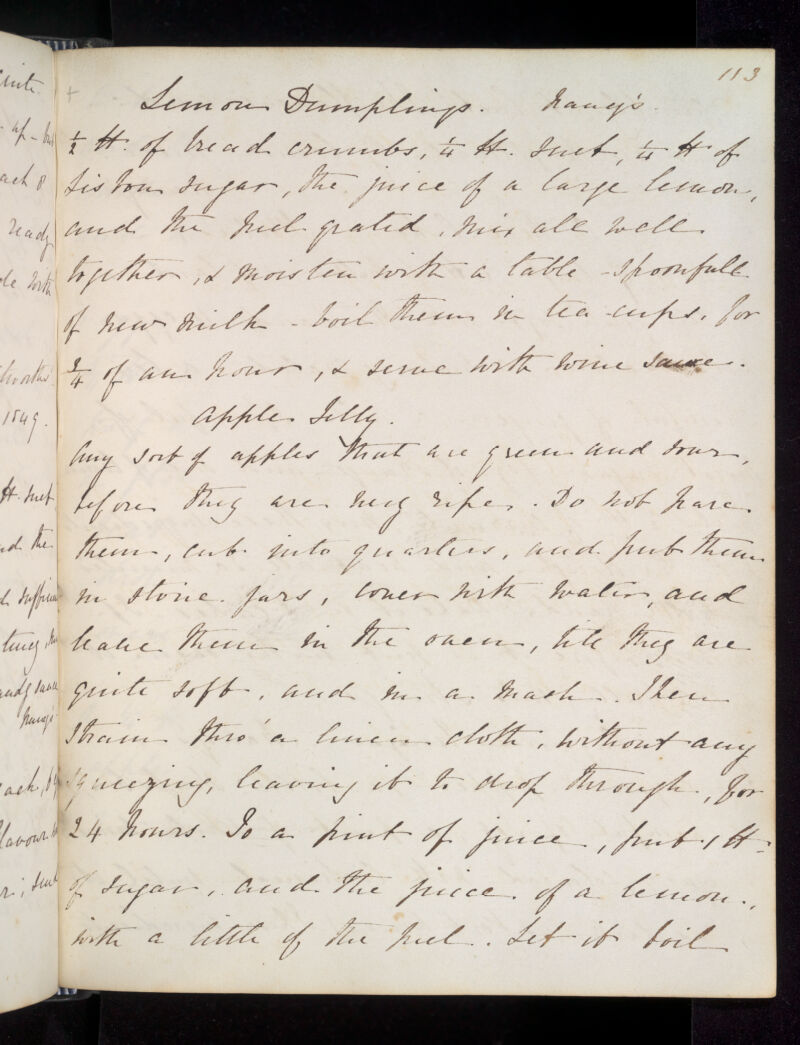 113
Lemon Dumplings. Nancy's.
½ lb. of bread crumbs, ¼ lb. suet, ¼ lb of
Lisbon sugar, the juice of a large lemon,
and the peel grated, mix all well
together, & moisten with a table-spoonfull
of new milk - boil them in tea-cups, for
¾ of an hour, & serve with wine sauce.
Apple Jelly.
Any sort of apples that are green and sour,
before they are very ripe. Do not pare
them, cut into quarters, and put them
in stone jars, cover with water, and
leave them in the oven, till they are
quite soft, and in a mash. Then
strain thro' a linen cloth, without any
squeezing, leaving it to drop through, for
24 hours. To a pint of juice, put 1 lb
of sugar, and the juice of a lemon,
with a little of the peel. Let it boil
ready
1849.
lb. suet
nd the
Nancy's